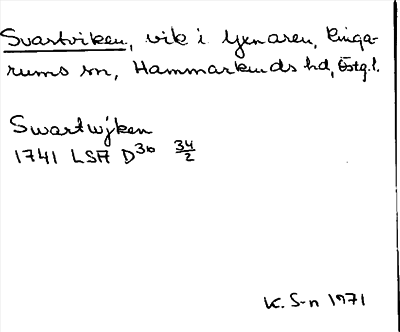 Svartviken, vik i Yxnaren, Ringa-
rums sn, Hammarkinds hd, Östg.l.
Swartwjken
1741 LSA D36 34/2
K. S-n 1971